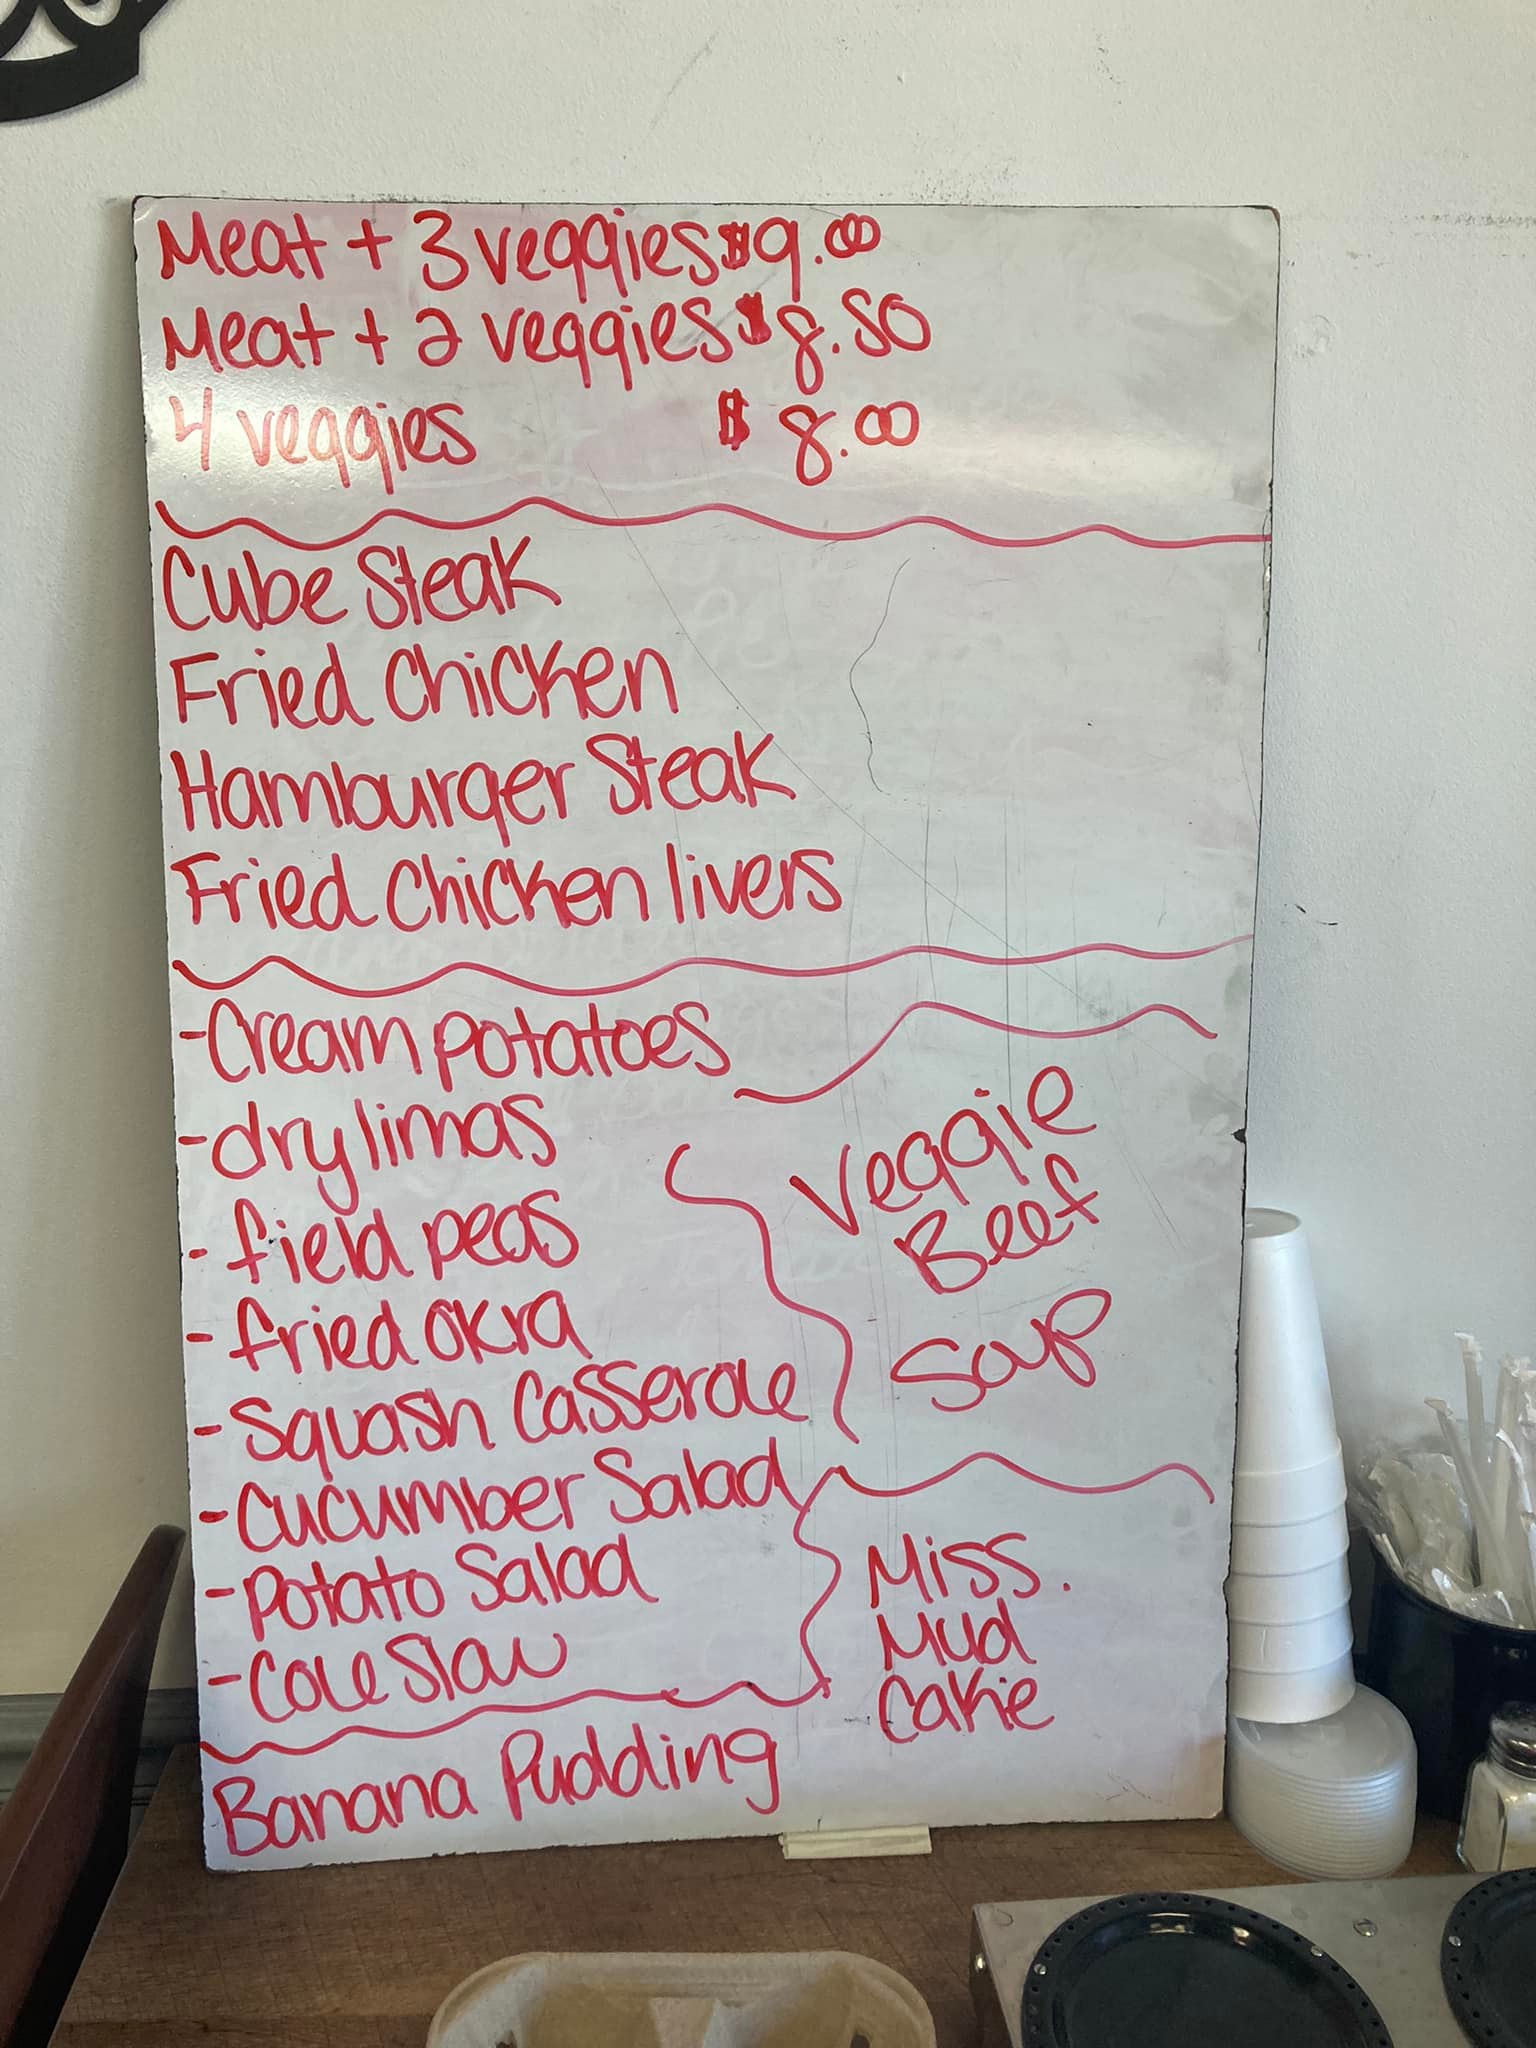 Meat + 3 veggies $9.00
Meat + 2 veggies $8.50
4 veggies $8.00
Cube Steak
Fried Chicken
Hamburger Steak
Fried Chicken livers
-Cream potatoes
-dry limas
-field peas
-fried okra
-Squash Casserole
-Cucumber Salad
-Potato Salad
-Cole Slaw
Veggie
Beef
Soup
Miss.
Mud
Cakie
Banana Pudding